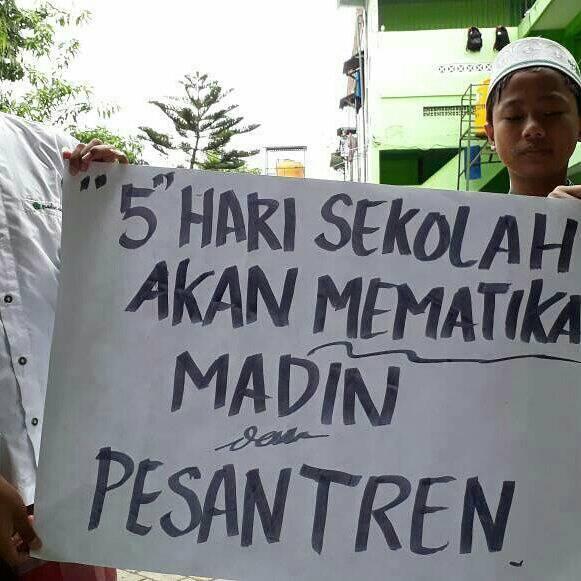 "5" HARI SEKOLAH
AKAN MEMATIKA
MADIN
dan
PESANTREN